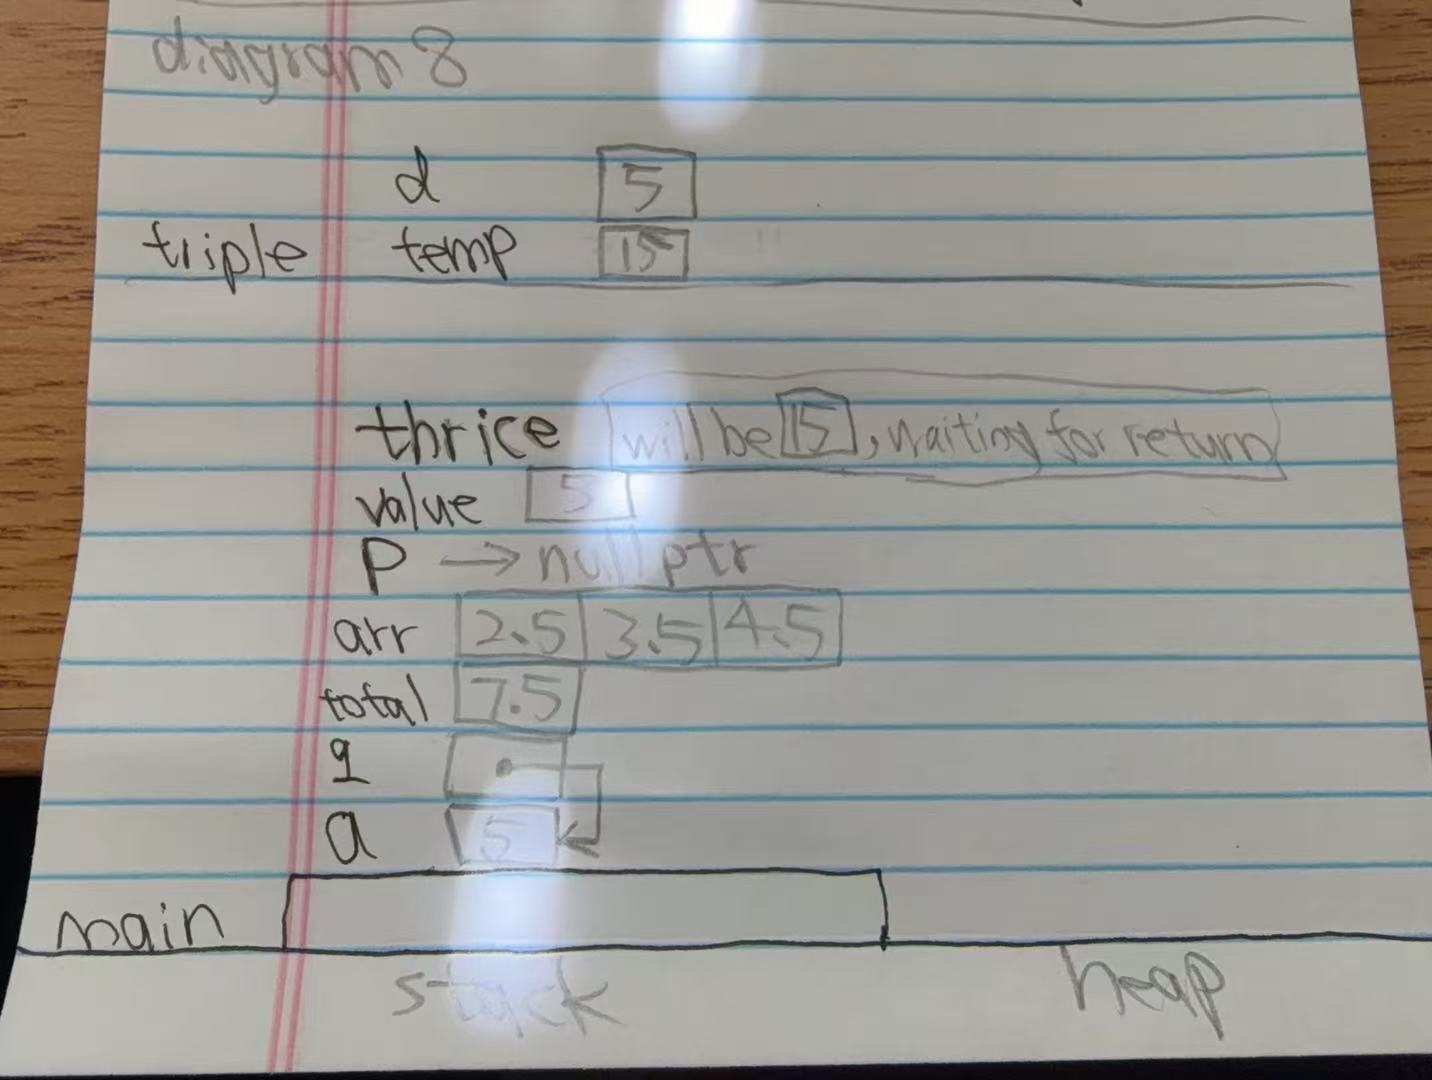 diagram 8
d 5
triple temp 15
thrice will be 15, waiting for return
value 5
p → nullptr
arr 2.5 3.5 4.5
total 7.5
q
a 5
main
stack heap